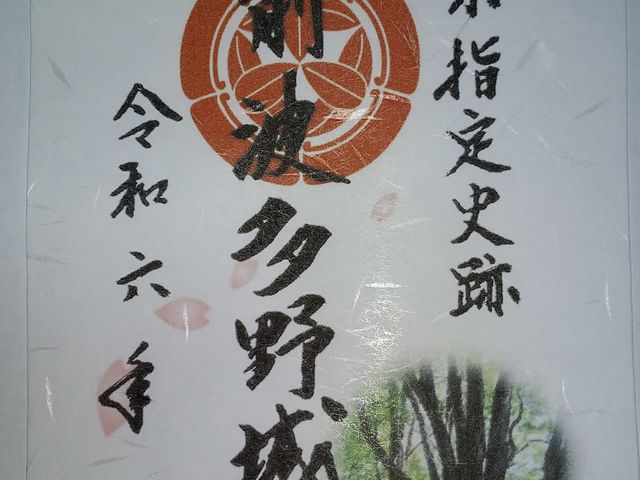 県指定史跡
前波多野城
令和六年